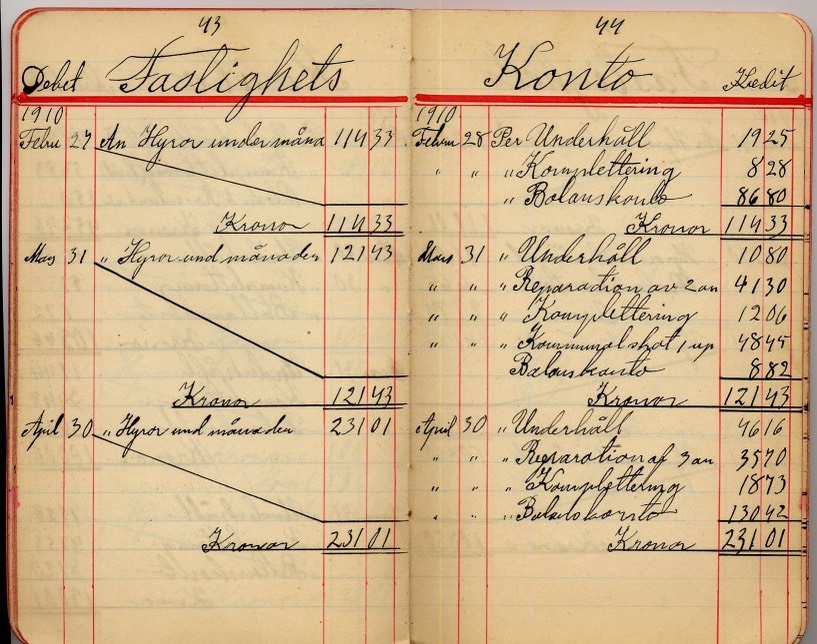 43
Debet Fastighets
1910
Febru 27 An Hyror under måna 114 33
Kronor 114 33
Mars 31 " Hyror und månaden 121 43
Kronor 121 43
April 30 " Hyror und månaden 231 01
Kronor 231 01
44
Konto Kredit
1910
Febru 28 Per Underhåll 19 25
" " " Komplettering 8 28
" Balanskonto 86 80
Kronor 114 33
Mars 31 " Underhåll 10 80
" " " Reparation av 2 an 41 30
" " " Komplettering 12 06
" " " Kommunal skat 1 up 48 45
Balanskonto 8 82
Kronor 121 43
April 30 " Underhåll 46 16
" " " Reparation af 3 an 35 70
" " " Komplettering 18 73
" " " Balanskonto 130 42
Kronor 231 01